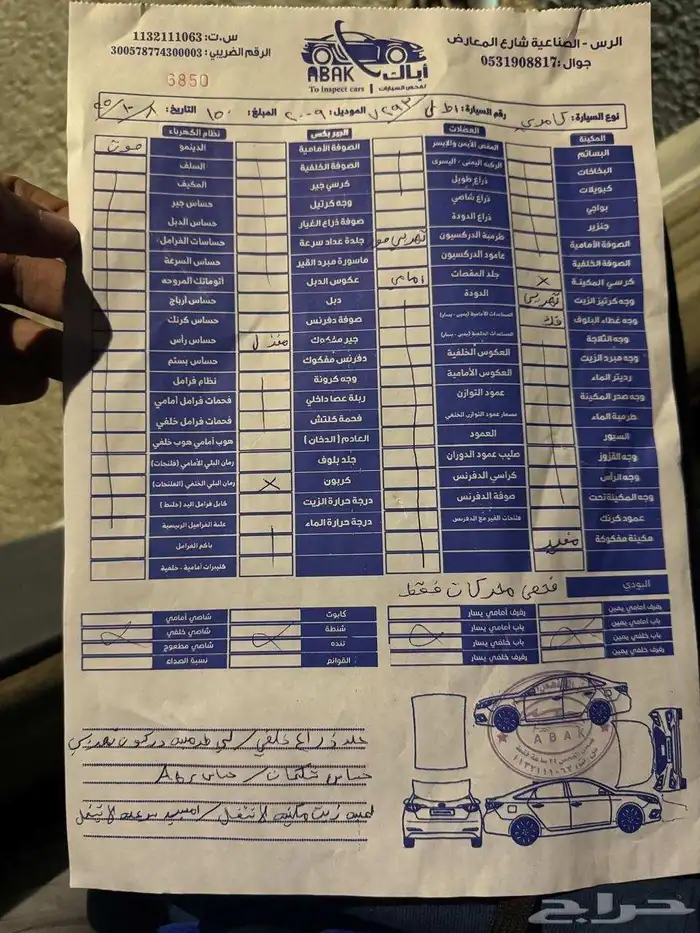 الرس - الصناعية شارع المعارض
جوال: 0531908817
أباك
ABAK
لفحص السيارات
To inspect cars
س.ت: 1132111063
الرقم الضريبي: 300578774300003
6850
نوع السيارة: كامري
رقم السيارة:
الموديل: ٢٠٠٩
المبلغ: ١٥٠
التاريخ:
المكينة
البساتم
البخاخات
كويلات
بواجي
جنزير
الصوفة الأمامية
الصوفة الخلفية
كرسي المكينة X
وجه كرتيز الزيت تهريب
وجه غطاء البلوف فك
وجه الثلاجة
وجه مبرد الزيت
رديتر الماء
وجه صدر المكينة
طرمبة الماء
السيور
وجه القزوز
وجه الرأس
وجه المكينة تحت
عمود كرنك
مكينة مفكوكة
العضلات
المقص الأيمن والأيسر
الركبه اليمنى - اليسرى
ذراع طويل
ذراع شاصي
ذراع الدودة
طرمبة الدركسيون
عامود الدركسيون
جلد المقصات امامي
الدودة
المساعدات الأمامية (يمين - يسار)
المساعدات الخلفية (يمين - يسار)
العكوس الخلفية
العكوس الأمامية
عمود التوازن
مسمار عمود التوازن الخلفي
العمود
صليب عمود الدوران
كراسي الدفرنس
صوفة الدفرنس
فلنجات القير مع الدفرنس
الجيربكس
الصوفة الأمامية
الصوفة الخلفية
كرسي جير
وجه كرتيل
صوفة ذراع الغيار
جلدة عداد سرعة
ماسورة مبرد القير
عكوس الدبل
دبل
صوفة دفرنس
جير مفكوك
دفرنس مفكوك
وجه كرونة
ربلة عصا داخلي
فحمة كلتش
العادم (الدخان)
جلد بلوف
كربون X
درجة حرارة الزيت
درجة حرارة الماء
نظام الكهرباء
الدينمو صوت
السلف
المكيف
حساس جير
حساس الدبل
حساسات الفرامل
حساس السرعة
أتوماتك المروحه
حساس أرباج
حساس كرنك
حساس رأس
حساس بستم
نظام فرامل
فحمات فرامل أمامي
فحمات فرامل خلفي
هوب أمامي هوب خلفي
رمان البلي الأمامي (فلنجات)
رمان البلي الخلفي (الفلنجات)
كابل فرامل اليد (جلنط)
علبة الفراميل الرئيسية
باكم الفرامل
كليبرات أمامية - خلفية
البودي
فحص محركات فقط
رفرف أمامي يمين
باب أمامي يمين
باب خلفي يمين
رفرف خلفي يمين
رفرف أمامي يسار
باب أمامي يسار
باب خلفي يسار
رفرف خلفي يسار
كابوت
شنطة
تنده
القوائم
شاصي أمامي
شاصي خلفي
شاصي مطعوج
نسبة الصداء
جلد ذراع خلفي / لي طرمبه دركسون تهريب
حساس شكمان / حساس Abs
لمبه زيت مكينه لا تشتغل / لا تشتغل
ABAK
حراج